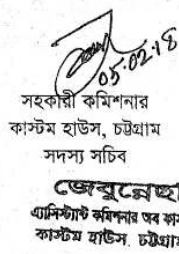 05.02.18
সহকারী কমিশনার
কাস্টম হাউস, চট্টগ্রাম
সদস্য সচিব
জেবুন্নেছা
এ্যাসিস্ট্যান্ট কমিশনার অব কাস
কাস্টম হাউস, চট্টগ্রাম